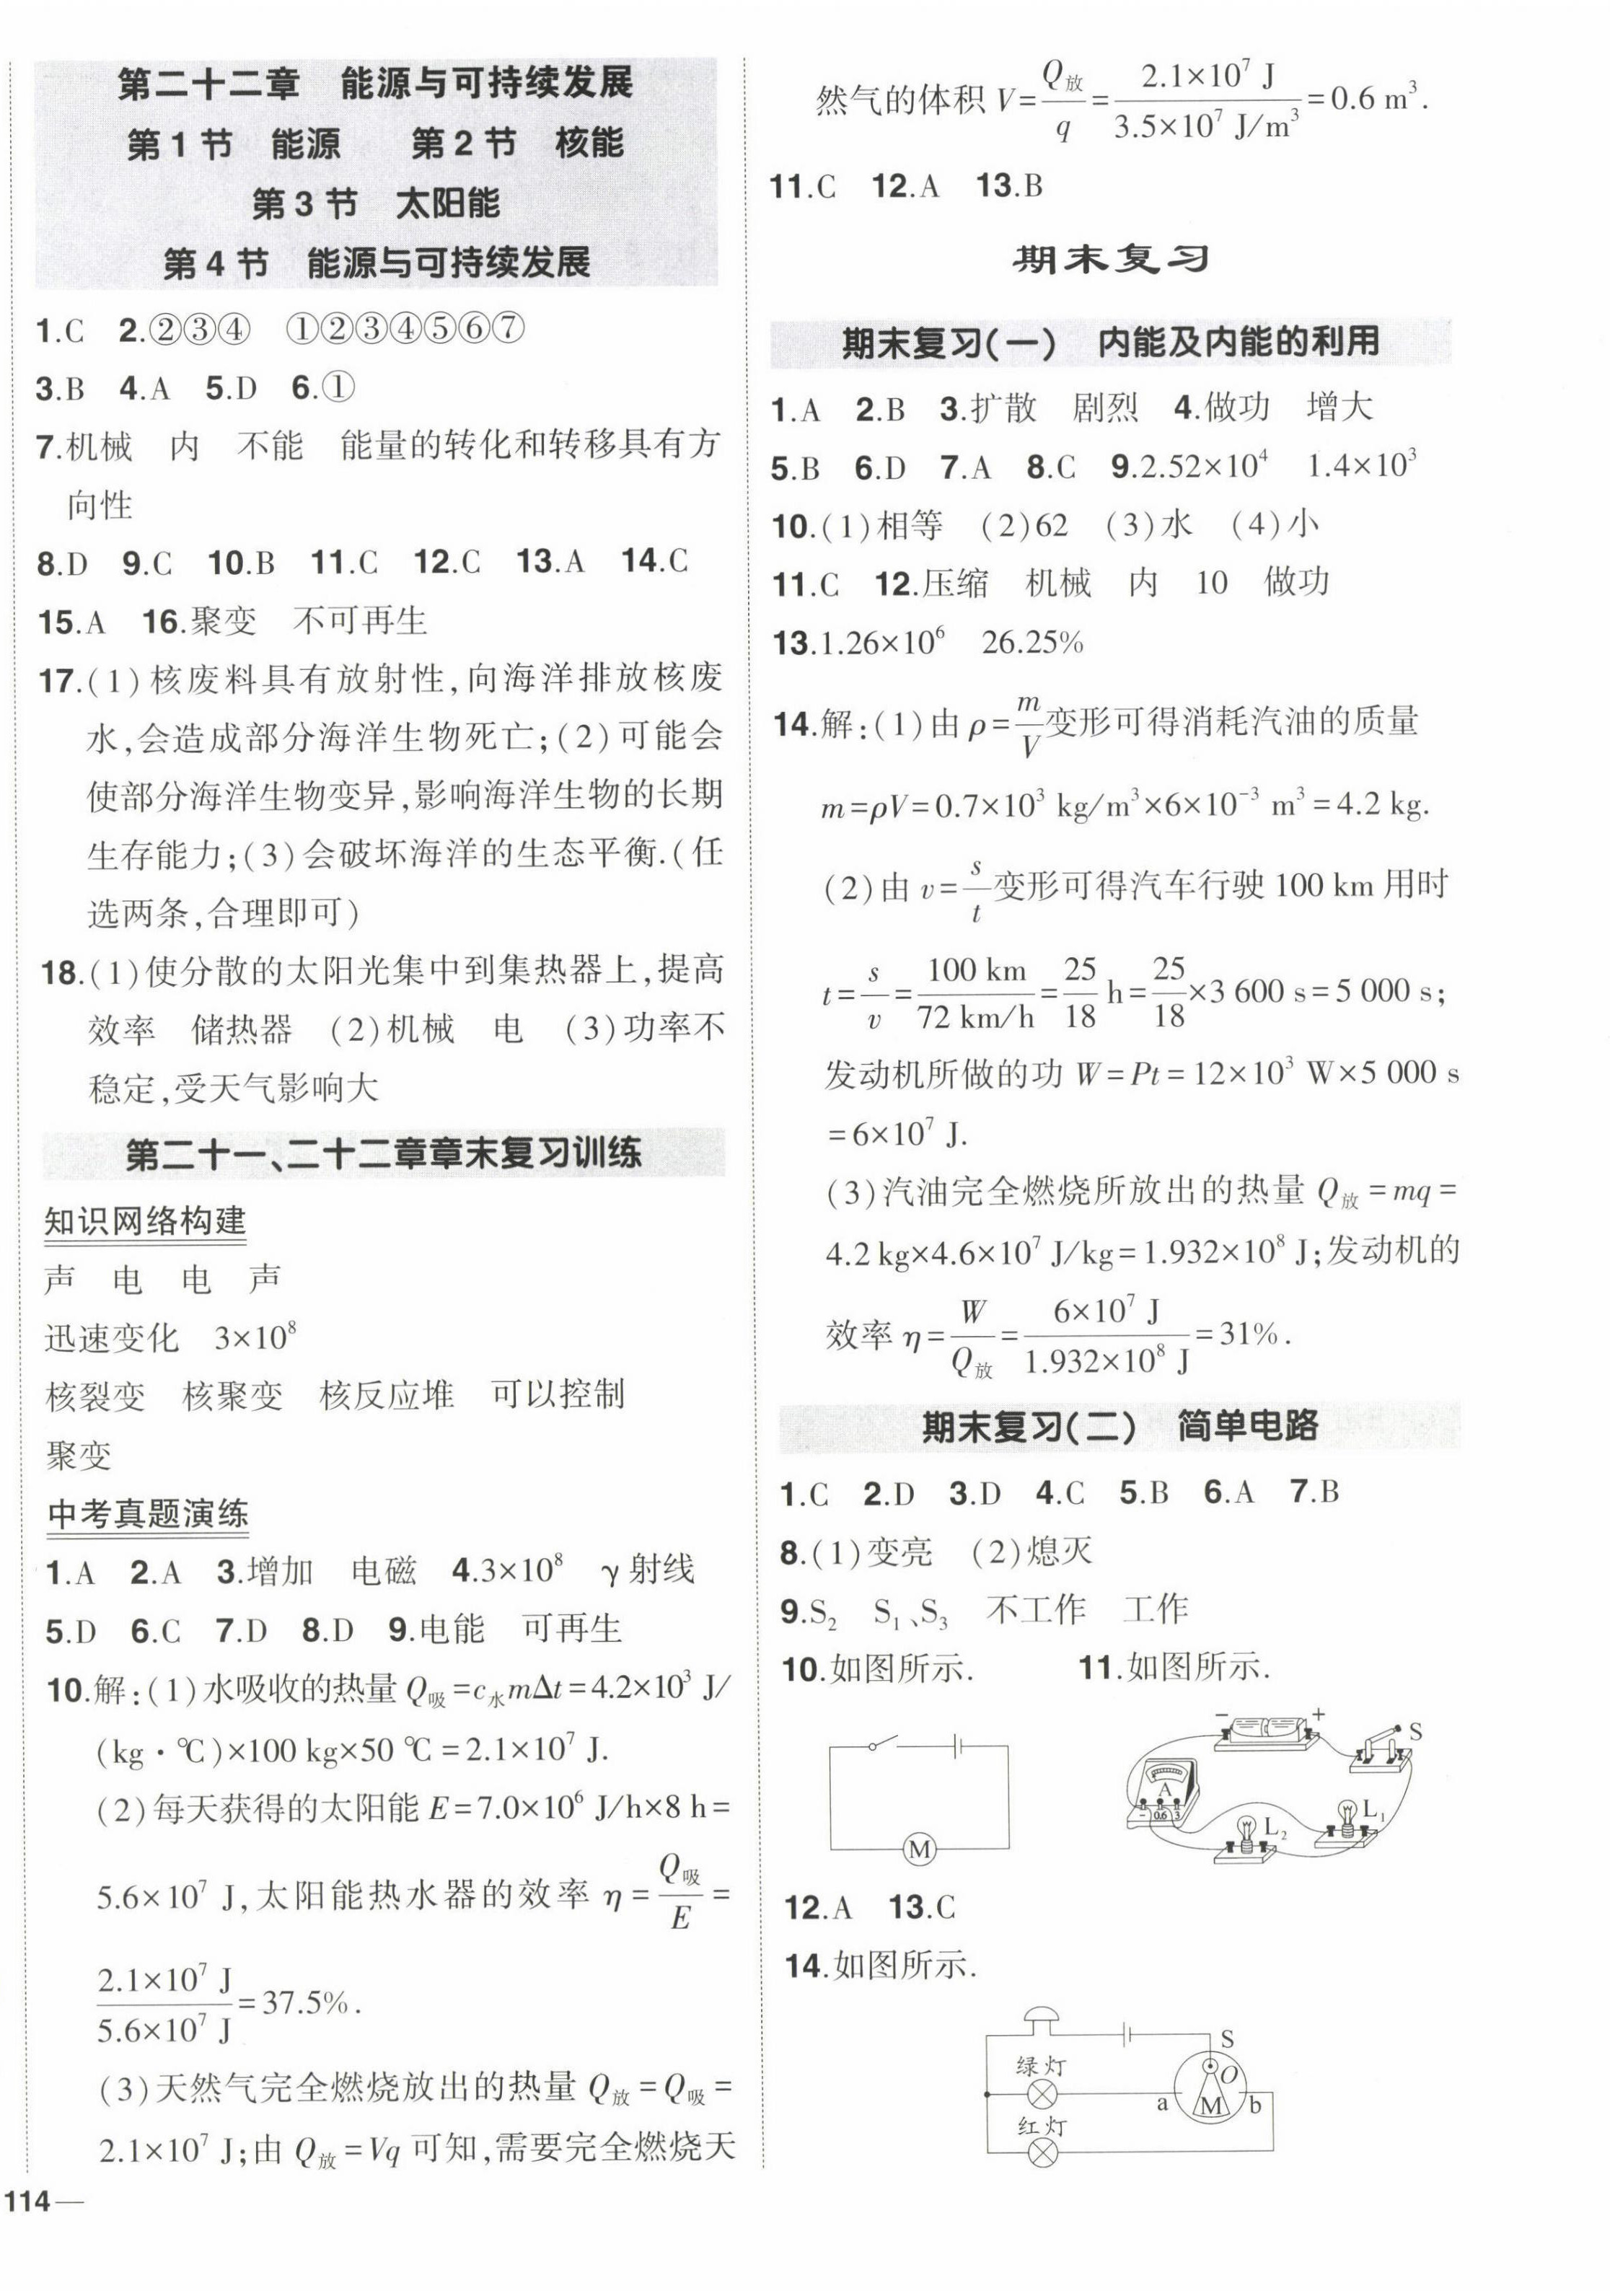 第二十二章 能源与可持续发展
第1节 能源 第2节 核能
第3节 太阳能
第4节 能源与可持续发展
1.C 2.②③④ ①②③④⑤⑥⑦
3.B 4.A 5.D 6.①
7.机械 内 不能 能量的转化和转移具有方
向性
8.D 9.C 10.B 11.C 12.C 13.A 14.C
15.A 16.聚变 不可再生
17.(1)核废料具有放射性,向海洋排放核废
水,会造成部分海洋生物死亡;(2)可能会
使部分海洋生物变异,影响海洋生物的长期
生存能力;(3)会破坏海洋的生态平衡.(任
选两条,合理即可)
18.(1)使分散的太阳光集中到集热器上,提高
效率 储热器 (2)机械 电 (3)功率不
稳定,受天气影响大
第二十一、二十二章章末复习训练
知识网络构建
声 电 电 声
迅速变化 3×10⁸
核裂变 核聚变 核反应堆 可以控制
聚变
中考真题演练
1.A 2.A 3.增加 电磁 4.3×10⁸ γ射线
5.D 6.C 7.D 8.D 9.电能 可再生
10.解:(1)水吸收的热量 Q吸=c水mΔt=4.2×10³ J/
(kg·℃)×100 kg×50 ℃=2.1×10⁷ J.
(2)每天获得的太阳能 E=7.0×10⁶ J/h×8 h=
5.6×10⁷ J,太阳能热水器的效率 η=Q吸/E=
2.1×10⁷ J/5.6×10⁷ J=37.5%.
(3)天然气完全燃烧放出的热量 Q放=Q吸=
2.1×10⁷ J;由 Q放=Vq 可知,需要完全燃烧天
114—
然气的体积 V=Q放/q=2.1×10⁷ J/3.5×10⁷ J/m³=0.6 m³.
11.C 12.A 13.B
期末复习
期末复习(一) 内能及内能的利用
1.A 2.B 3.扩散 剧烈 4.做功 增大
5.B 6.D 7.A 8.C 9.2.52×10⁴ 1.4×10³
10.(1)相等 (2)62 (3)水 (4)小
11.C 12.压缩 机械 内 10 做功
13.1.26×10⁶ 26.25%
14.解:(1)由 ρ=m/V变形可得消耗汽油的质量
m=ρV=0.7×10³ kg/m³×6×10⁻³ m³=4.2 kg.
(2)由 v=s/t变形可得汽车行驶 100 km 用时
t=s/v=100 km/72 km/h=25/18 h=25/18×3 600 s=5 000 s;
发动机所做的功 W=Pt=12×10³ W×5 000 s
=6×10⁷ J.
(3)汽油完全燃烧所放出的热量 Q放=mq=
4.2 kg×4.6×10⁷ J/kg=1.932×10⁸ J;发动机的
效率 η=W/Q放=6×10⁷ J/1.932×10⁸ J=31%.
期末复习(二) 简单电路
1.C 2.D 3.D 4.C 5.B 6.A 7.B
8.(1)变亮 (2)熄灭
9.S₂ S₁、S₃ 不工作 工作
10.如图所示. 11.如图所示.
M
− +
S
A
− 0.6 3
L₂ L₁
12.A 13.C
14.如图所示.
S
绿灯 O
a M b
红灯